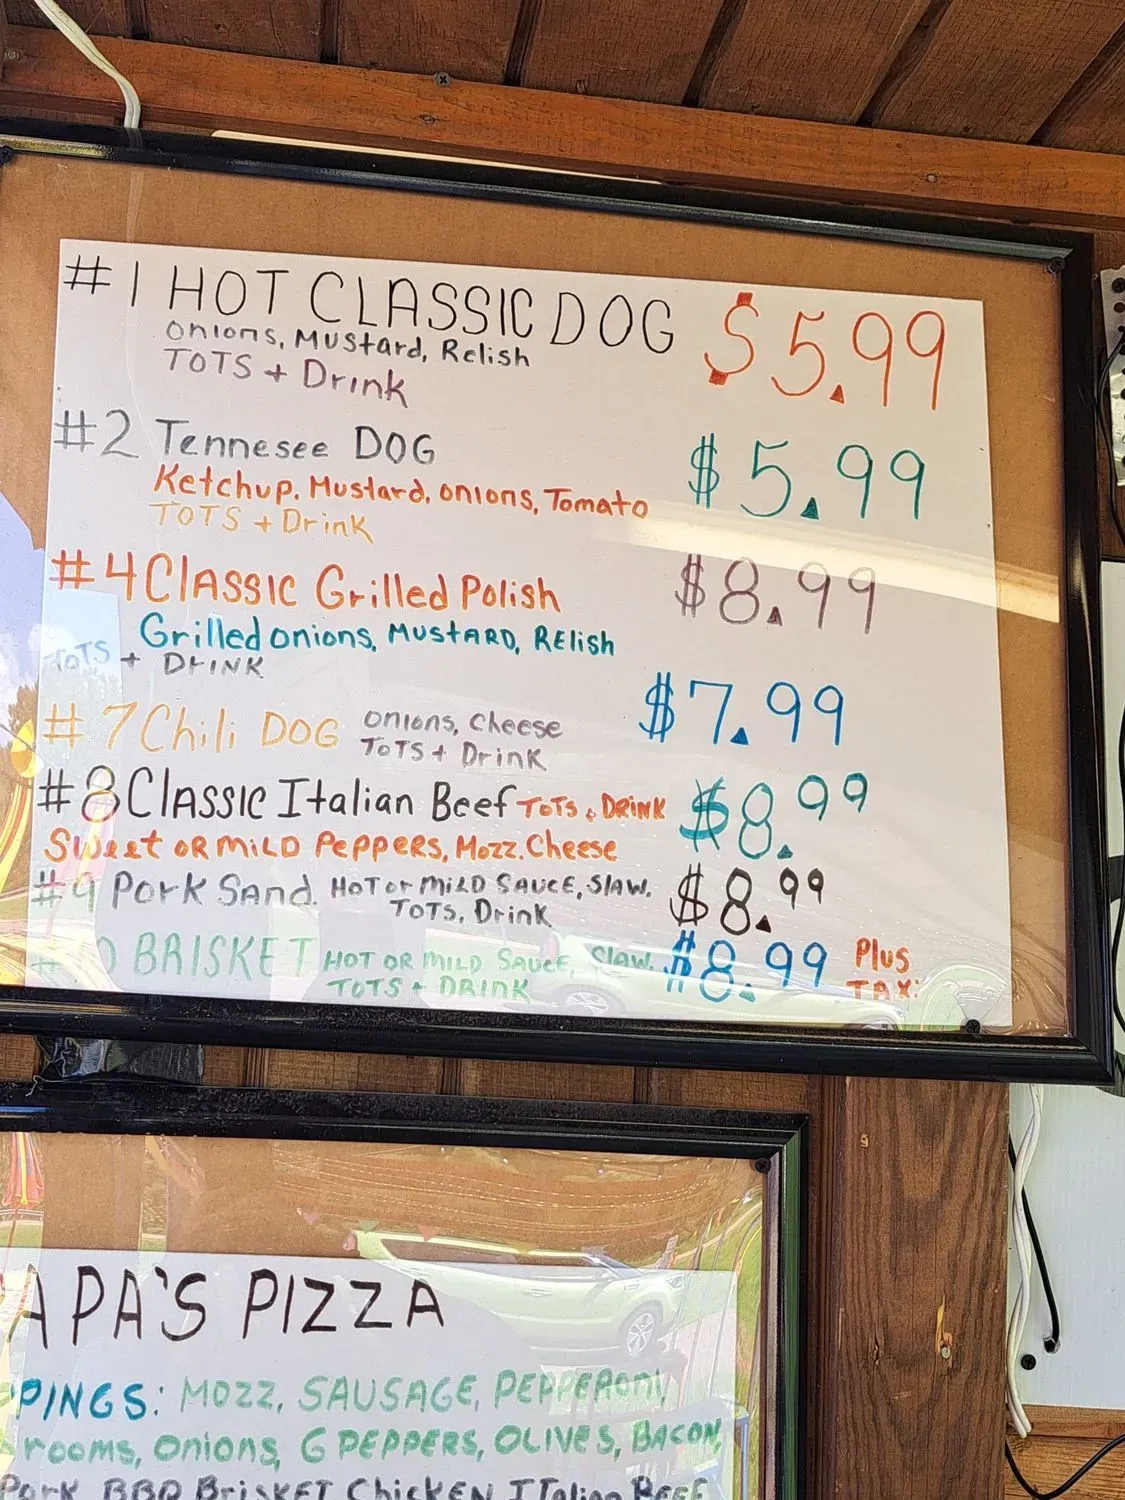 #1 HOT CLASSIC DOG $5.99
Onions, Mustard, Relish
TOTS + Drink
#2 Tennesee DOG $5.99
Ketchup, Mustard, Onions, Tomato
TOTS + Drink
#4 Classic Grilled Polish $8.99
Grilled onions, MUSTARD, RElish
TOTS + DrINK
#7 Chili DOG Onions, Cheese $7.99
TOTS + Drink
#8 Classic Italian Beef TOTS & DRINK $8.99
Sweet OR MILD PEPPERS, Mozz. Cheese
#9 Pork Sand. HOT or MILD SAUCE, SlAW, $8.99
TOTS, Drink
#10 BRISKET HOT OR MILD SAUCE, SlAW, $8.99 Plus
TOTS + DRINK TAX:
APA'S PIZZA
PINGS: MOZZ, SAUSAGE, PEPPERONI,
rooms, Onions, G PEPPERS, OLIVES, BACON,
Pork BBQ BrisKET Chicken ITalian BEEF